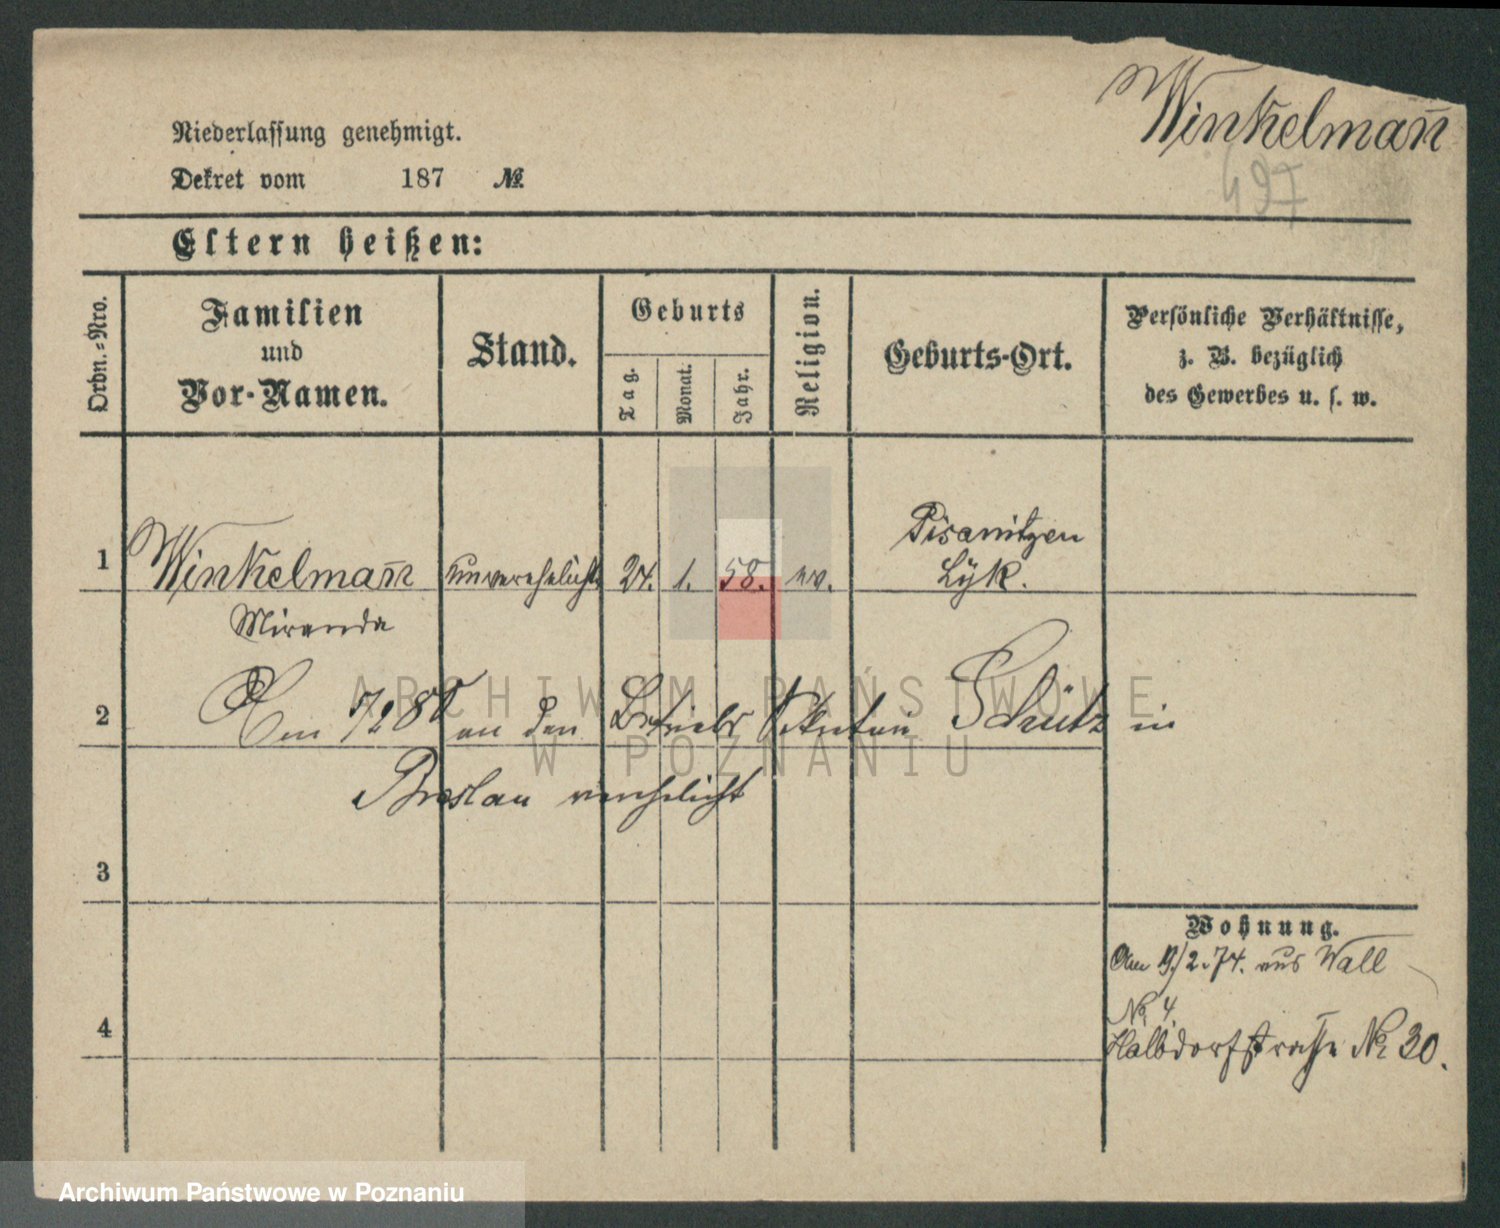 Winkelmañ
497
Niederlassung genehmigt.
Dekret vom 187 №
Eltern heißen:
Ordn.-Nro.
Familien und Vor-Namen.
Stand.
Geburts
Tag.
Monat.
Jahr.
Religion.
Geburts-Ort.
Persönliche Verhältnisse,
z. B. bezüglich
des Gewerbes u. s. w.
Pisanitzen
1 Winkelmañ unverehelicht 24. 1. 58. ev. Lÿk.
Miranda
2 Am an den Betriebs Sekretair Schütz in
Breslau verehelicht
3
4
Wohnung.
Am 9./2.74. aus Wall
No 4.
Halbdorfstrasse No 30.
ARCHIWUM PAŃSTWOWE
W POZNANIU
Archiwum Państwowe w Poznaniu